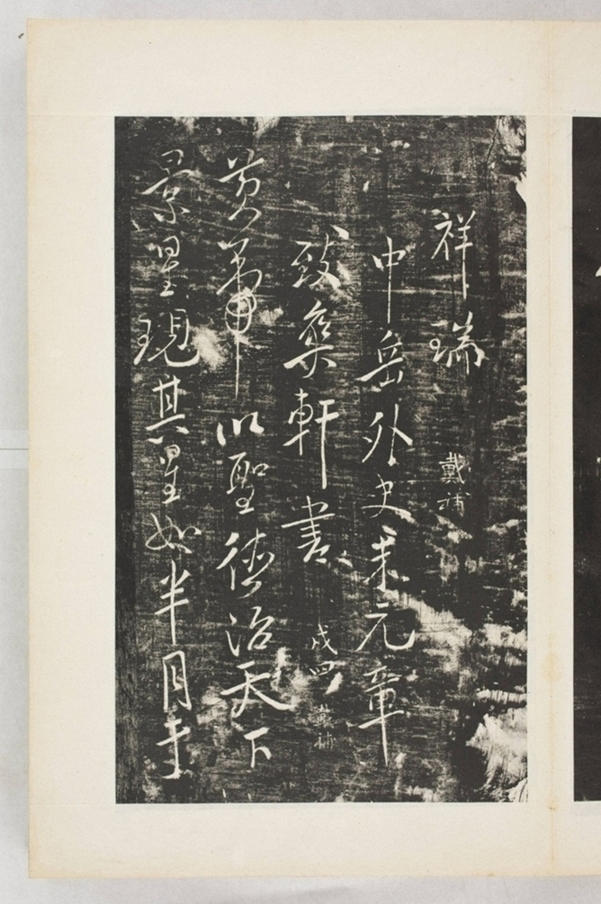 祥瑞
戴補
中岳外史米元章
致爽軒書
黃帝以聖德治天下
景星現其星如半月生